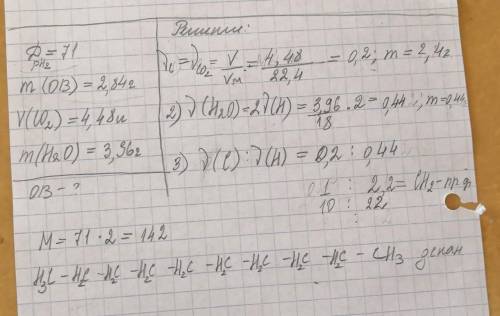 Решение:
D pH₂ = 71
m(ОВ) = 2,84г
V(CO₂) = 4,48л
m(H₂O) = 3,96г
ОВ - ?
νc = νCO₂ = V/Vм = 4,48/22,4 = 0,2; m = 2,4г
2) ν(H₂O) = 2ν(H) = 3,96/18 · 2 = 0,44; m=0,44
3) ν(C) : ν(H) = 0,2 : 0,44
1 : 2,2 = CH₂ - пр.ф
10 : 22
M = 71 · 2 = 142
H₃C - H₂C - H₂C - H₂C - H₂C - H₂C - H₂C - H₂C - H₂C - CH₃ декан